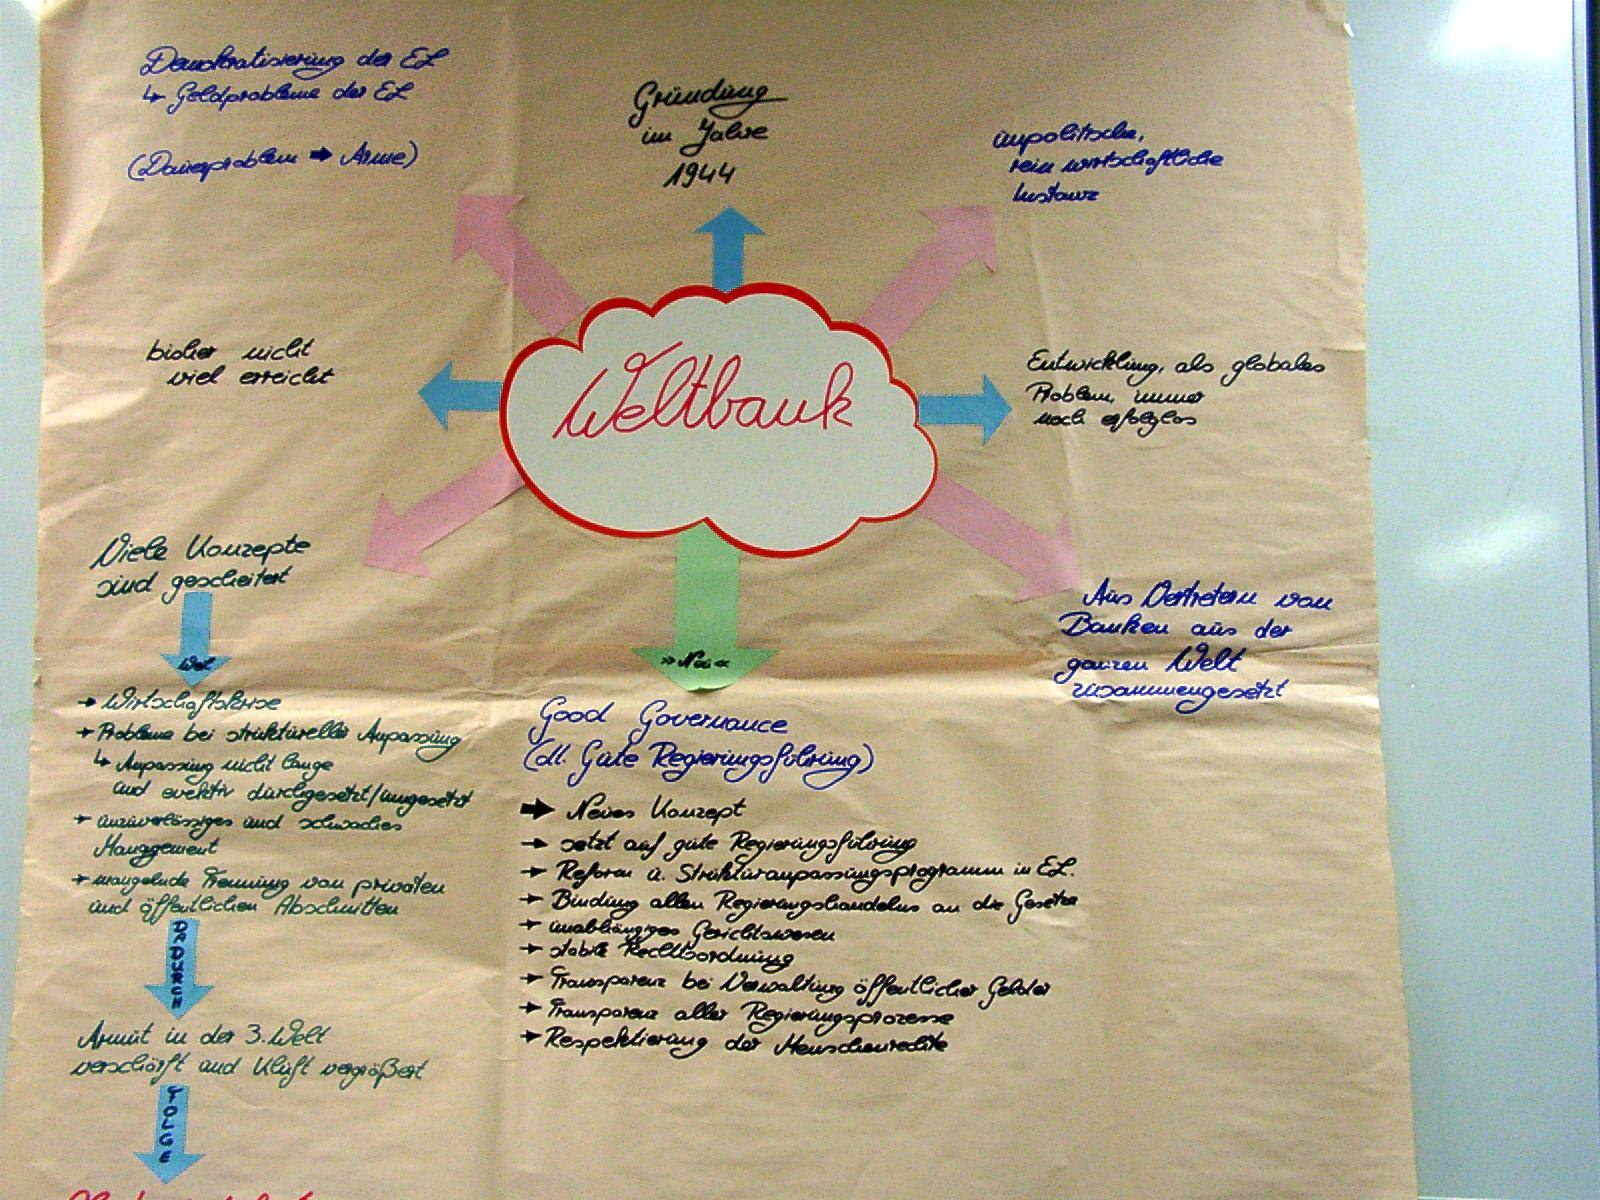 Demokratisierung der EL
↳ Geldprobleme der EL
(Dauerproblem ➡ Arme)
Gründung
im Jahre
1944
unpolitische,
rein wirtschaftliche
Instanz
bisher nicht
viel erreicht
Weltbank
Entwicklung, als globales
Problem, immer
noch erfolglos
Viele Konzepte
sind gescheitert
Weil
→ Wirtschaftskrise
→ Probleme bei struktureller Anpassung
↳ Anpassung nicht lange
und evektiv durchgesetzt/umgesetzt
→ unzuverlässiges und schwaches
Management
→ mangelnde Trennung von privaten
und öffentlichen Abschnitten
DADURCH
Armut in der 3. Welt
verschärft und Kluft vergrößert
FOLGE
»Neu«
Good Governance
(dt. Gute Regierungsführung)
➡ Neues Konzept
→ setzt auf gute Regierungsführung
→ Reform u. Strukturanpassungsprogramm in EL.
→ Bindung allen Regierungshandelns an die Gesetze
→ unabhängiges Gerichtswesen
→ stabile Rechtsordnung
→ Transparenz bei Verwaltung öffentlicher Gelder
→ Transparenz aller Regierungsprozesse
→ Respektierung der Menschenrechte
Aus Vertretern von
Banken aus der
ganzen Welt
zusammengesetzt